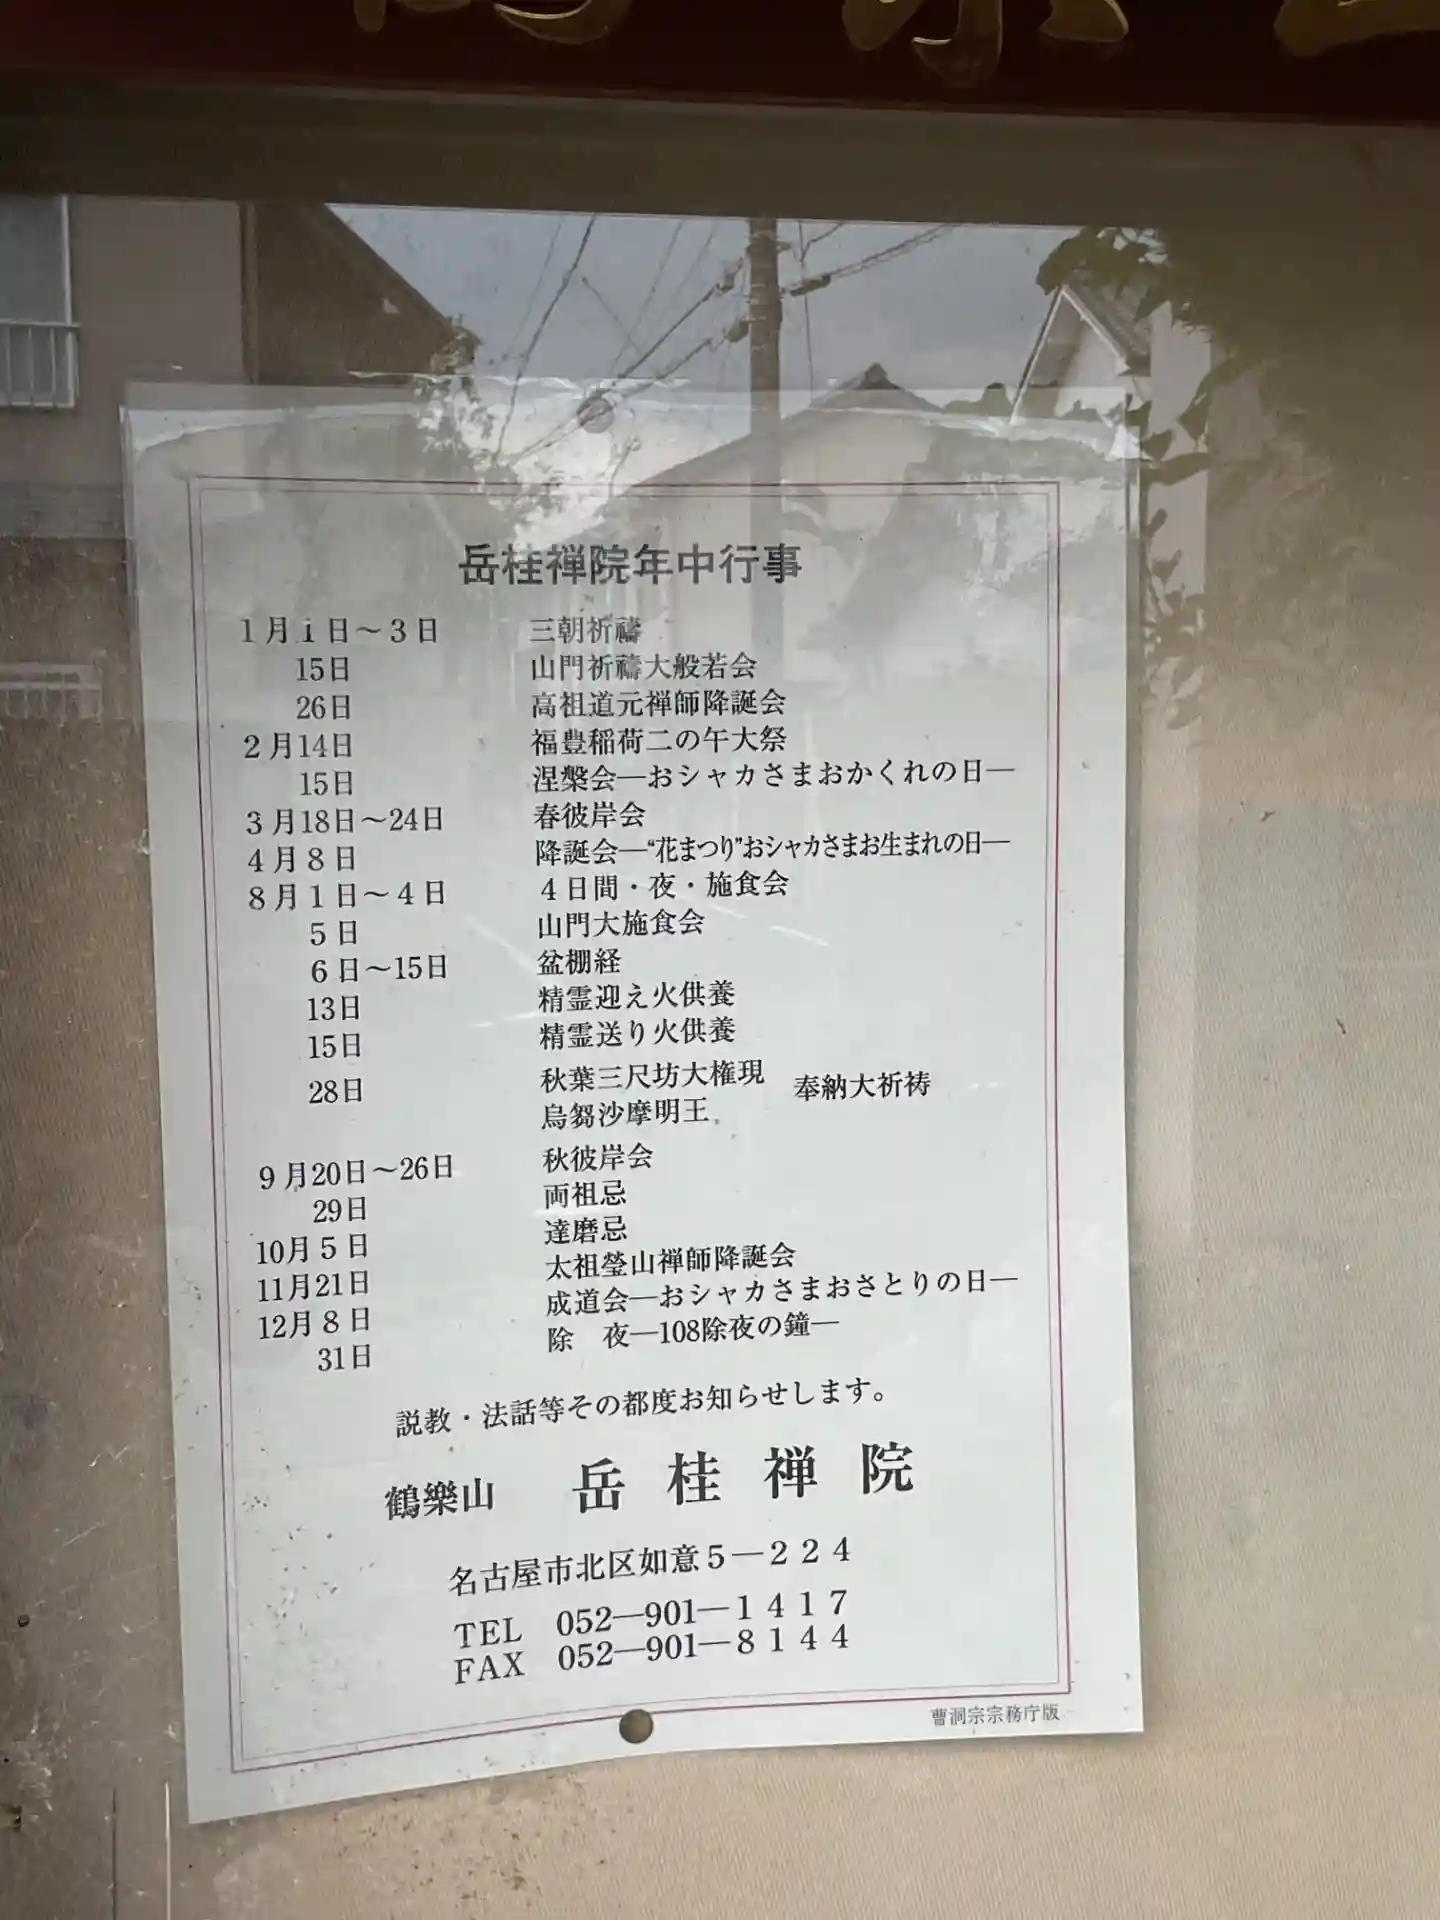 岳桂禅院年中行事
1月1日～3日　三朝祈禱
15日　山門祈禱大般若会
26日　高祖道元禅師降誕会
2月14日　福豊稲荷二の午大祭
15日　涅槃会―おシャカさまおかくれの日―
3月18日～24日　春彼岸会
4月8日　降誕会―“花まつり”おシャカさまお生まれの日―
8月1日～4日　4日間・夜・施食会
5日　山門大施食会
6日～15日　盆棚経
13日　精霊迎え火供養
15日　精霊送り火供養
28日　秋葉三尺坊大権現　奉納大祈祷
烏芻沙摩明王
9月20日～26日　秋彼岸会
29日　両祖忌
10月5日　達磨忌
11月21日　太祖瑩山禅師降誕会
12月8日　成道会―おシャカさまおさとりの日―
31日　除　夜―108除夜の鐘―
説教・法話等その都度お知らせします。
鶴樂山　岳桂禅院
名古屋市北区如意5―224
TEL　052―901―1417
FAX　052―901―8144
曹洞宗宗務庁版